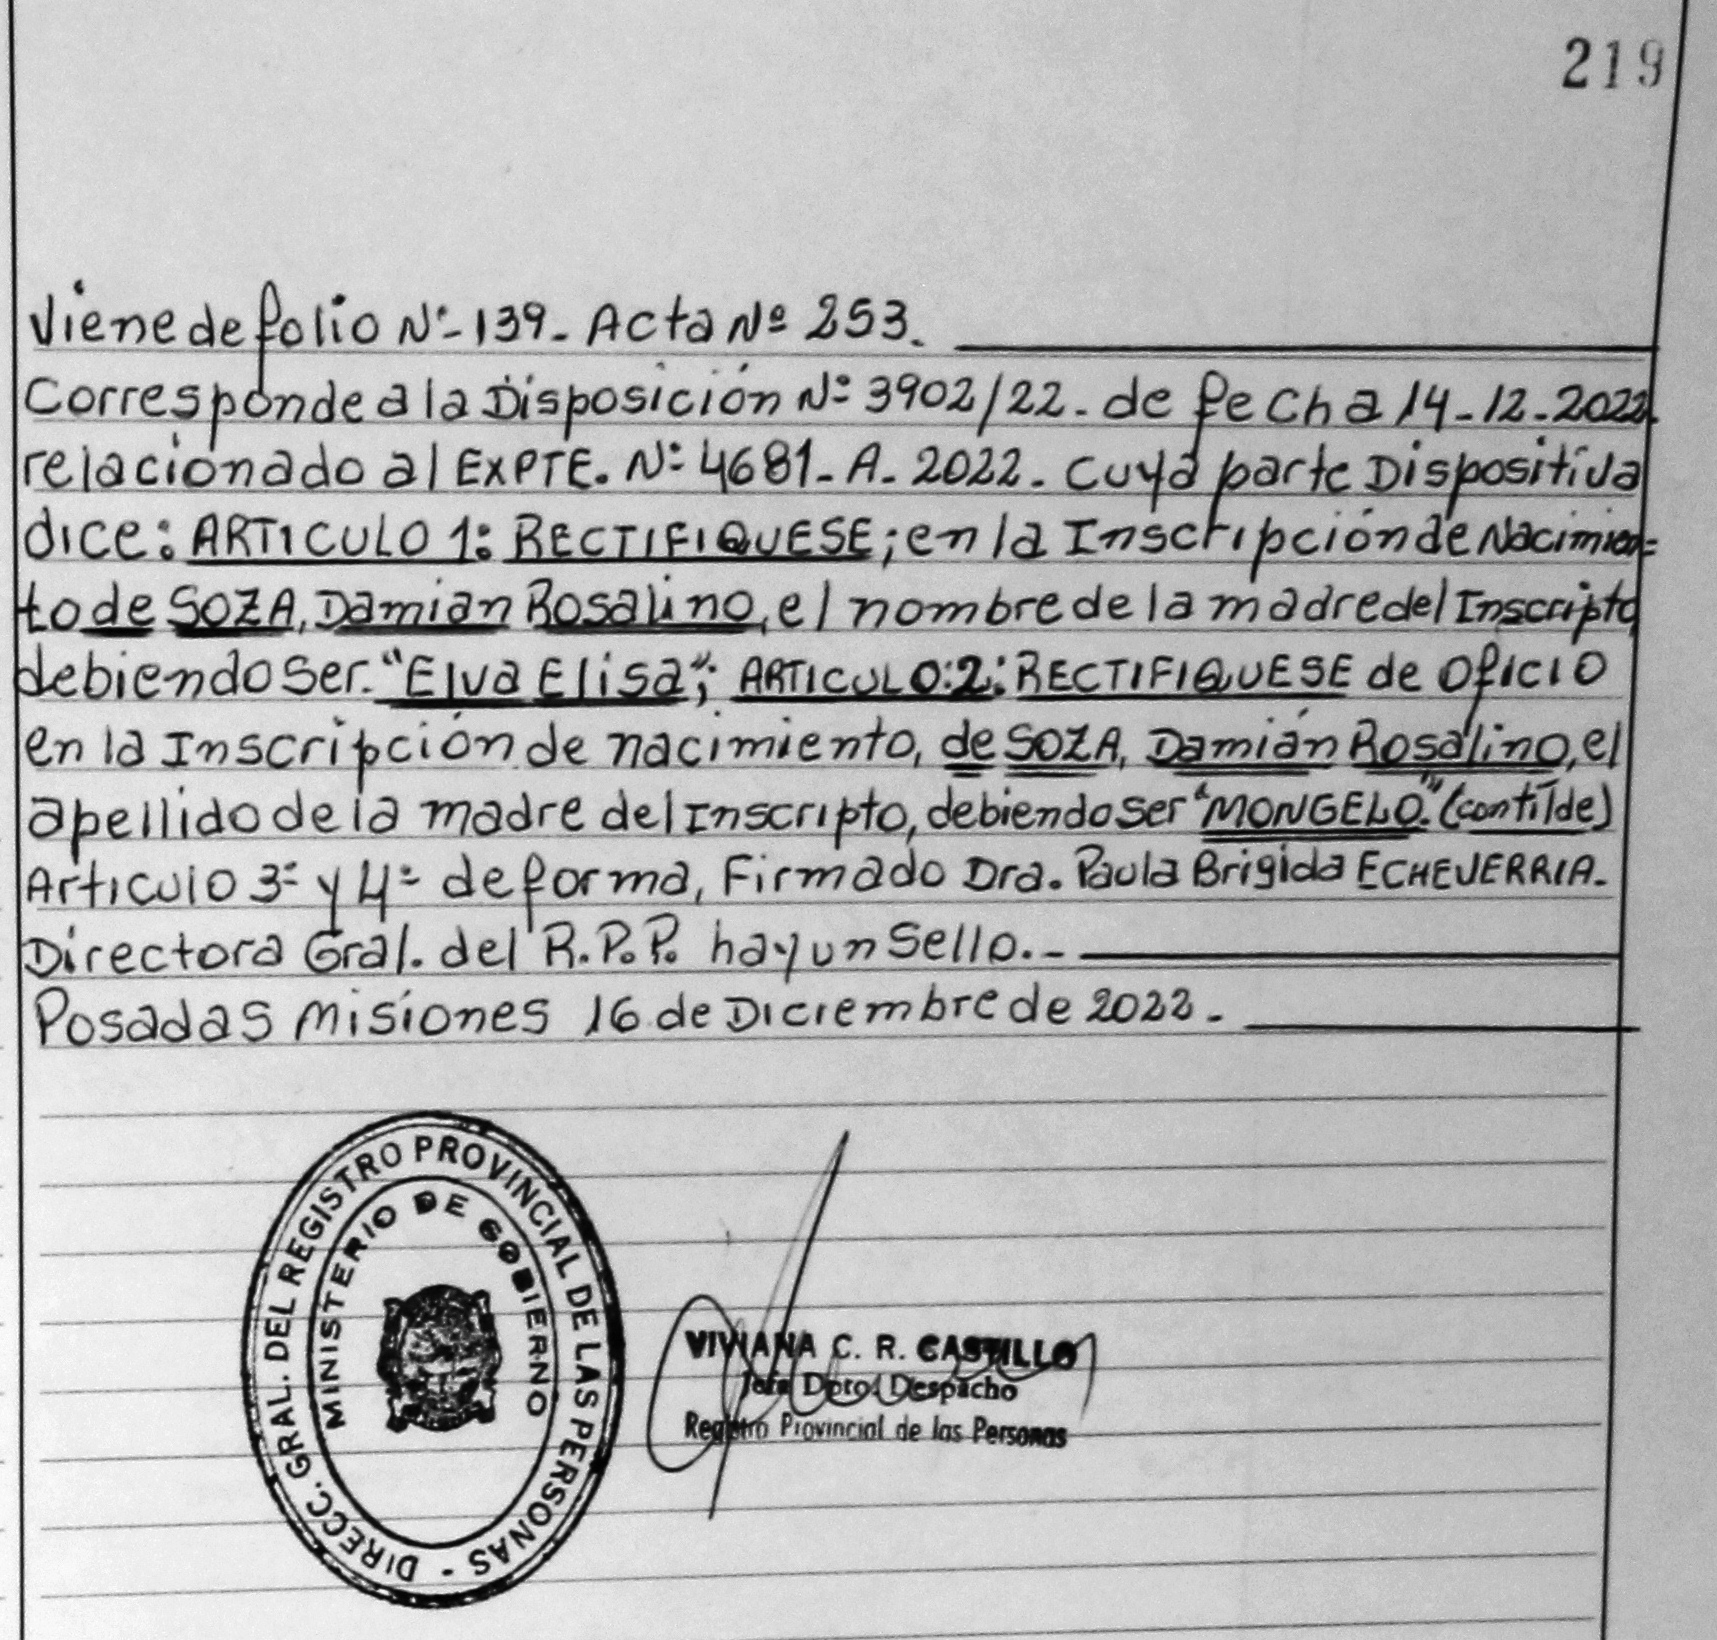 219
Viene de folio Nº-139- Acta Nº 253.
Corresponde a la Disposición Nº 3902/22. de fecha 14-12-2022
relacionado al EXPTE. Nº 4681-A-2022. Cuya parte Dispositiva
dice: ARTICULO 1: RECTIFIQUESE; en la Inscripción de Nacimien=
to de SOZA, Damián Rosalino, el nombre de la madre del Inscripto,
debiendo ser. "Elva Elisa"; ARTICULO:2: RECTIFIQUESE de Oficio
en la Inscripción de nacimiento, de SOZA, Damián Rosalino, el
apellido de la madre del Inscripto, debiendo ser "MONGELO." (con tilde)
Articulo 3º y 4º de forma, Firmado Dra. Paula Brigida ECHEVERRIA.
Directora Gral. del R.P.P. hay un Sello.-
Posadas Misiones 16 de Diciembre de 2022.
DIRECC. GRAL. DEL REGISTRO PROVINCIAL DE LAS PERSONAS -
MINISTERIO DE GOBIERNO
VIVIANA C. R. CASTILLO
Jefa Dpto. Despacho
Registro Provincial de las Personas